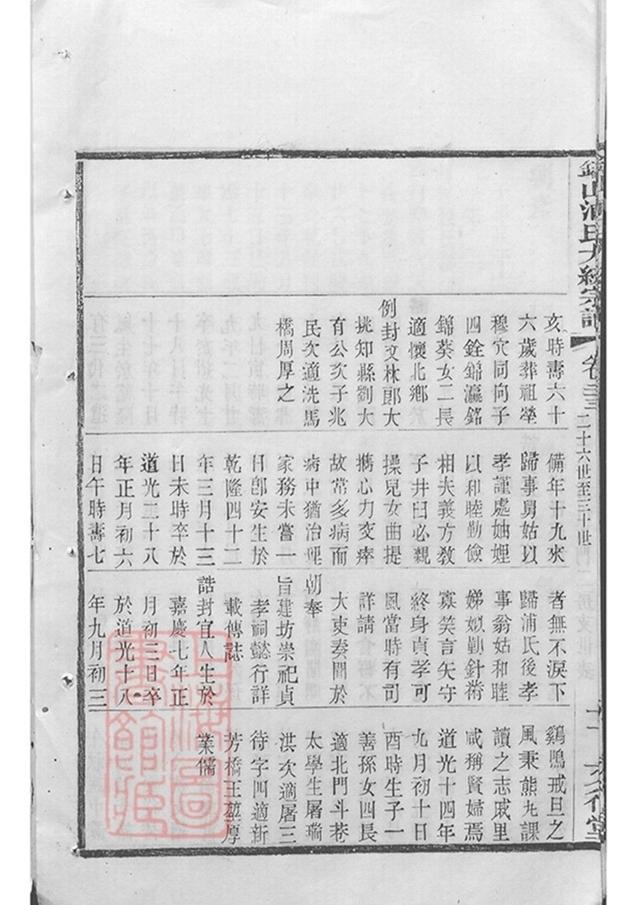 卷三三
二十六世至三十世
亥時壽六十
六歲葬祖塋
穆穴同向子
四銓錦瀛銘
錦葵女二長
適懷北鄉
例封文林郎大
挑知縣劉大
有公次子兆
民次適洗馬
橋周厚之
備年十九來
歸事舅姑以
孝謹處妯娌
以和睦勤儉
相夫義方教
子井臼必親
操兒女曲提
攜心力交瘁
故常多病而
病中猶治理
家務未嘗一
日卽安生於
乾隆四十二
年三月十三
日未時卒於
道光二十八
年正月初六
日午時壽七
者無不淚下
歸浦氏後孝
事翁姑和睦
娣姒勤針黹
寡笑言矢守
終身貞孝可
風當時有司
詳請
大吏奏聞於
朝奉
旨建坊崇祀貞
孝祠懿行詳
載傳誌
誥封宜人生於
嘉慶七年正
月初三日卒
於道光十八
年九月初三
鷄鳴戒旦之
風秉熊丸課
讀之志戚里
咸稱賢婦焉
道光十四年
九月初十日
酉時生子一
善孫女四長
適北門斗巷
太學生屠瑞
洪次適屠三
待字四適新
芳橋王厚
業儒
上海圖
書館藏